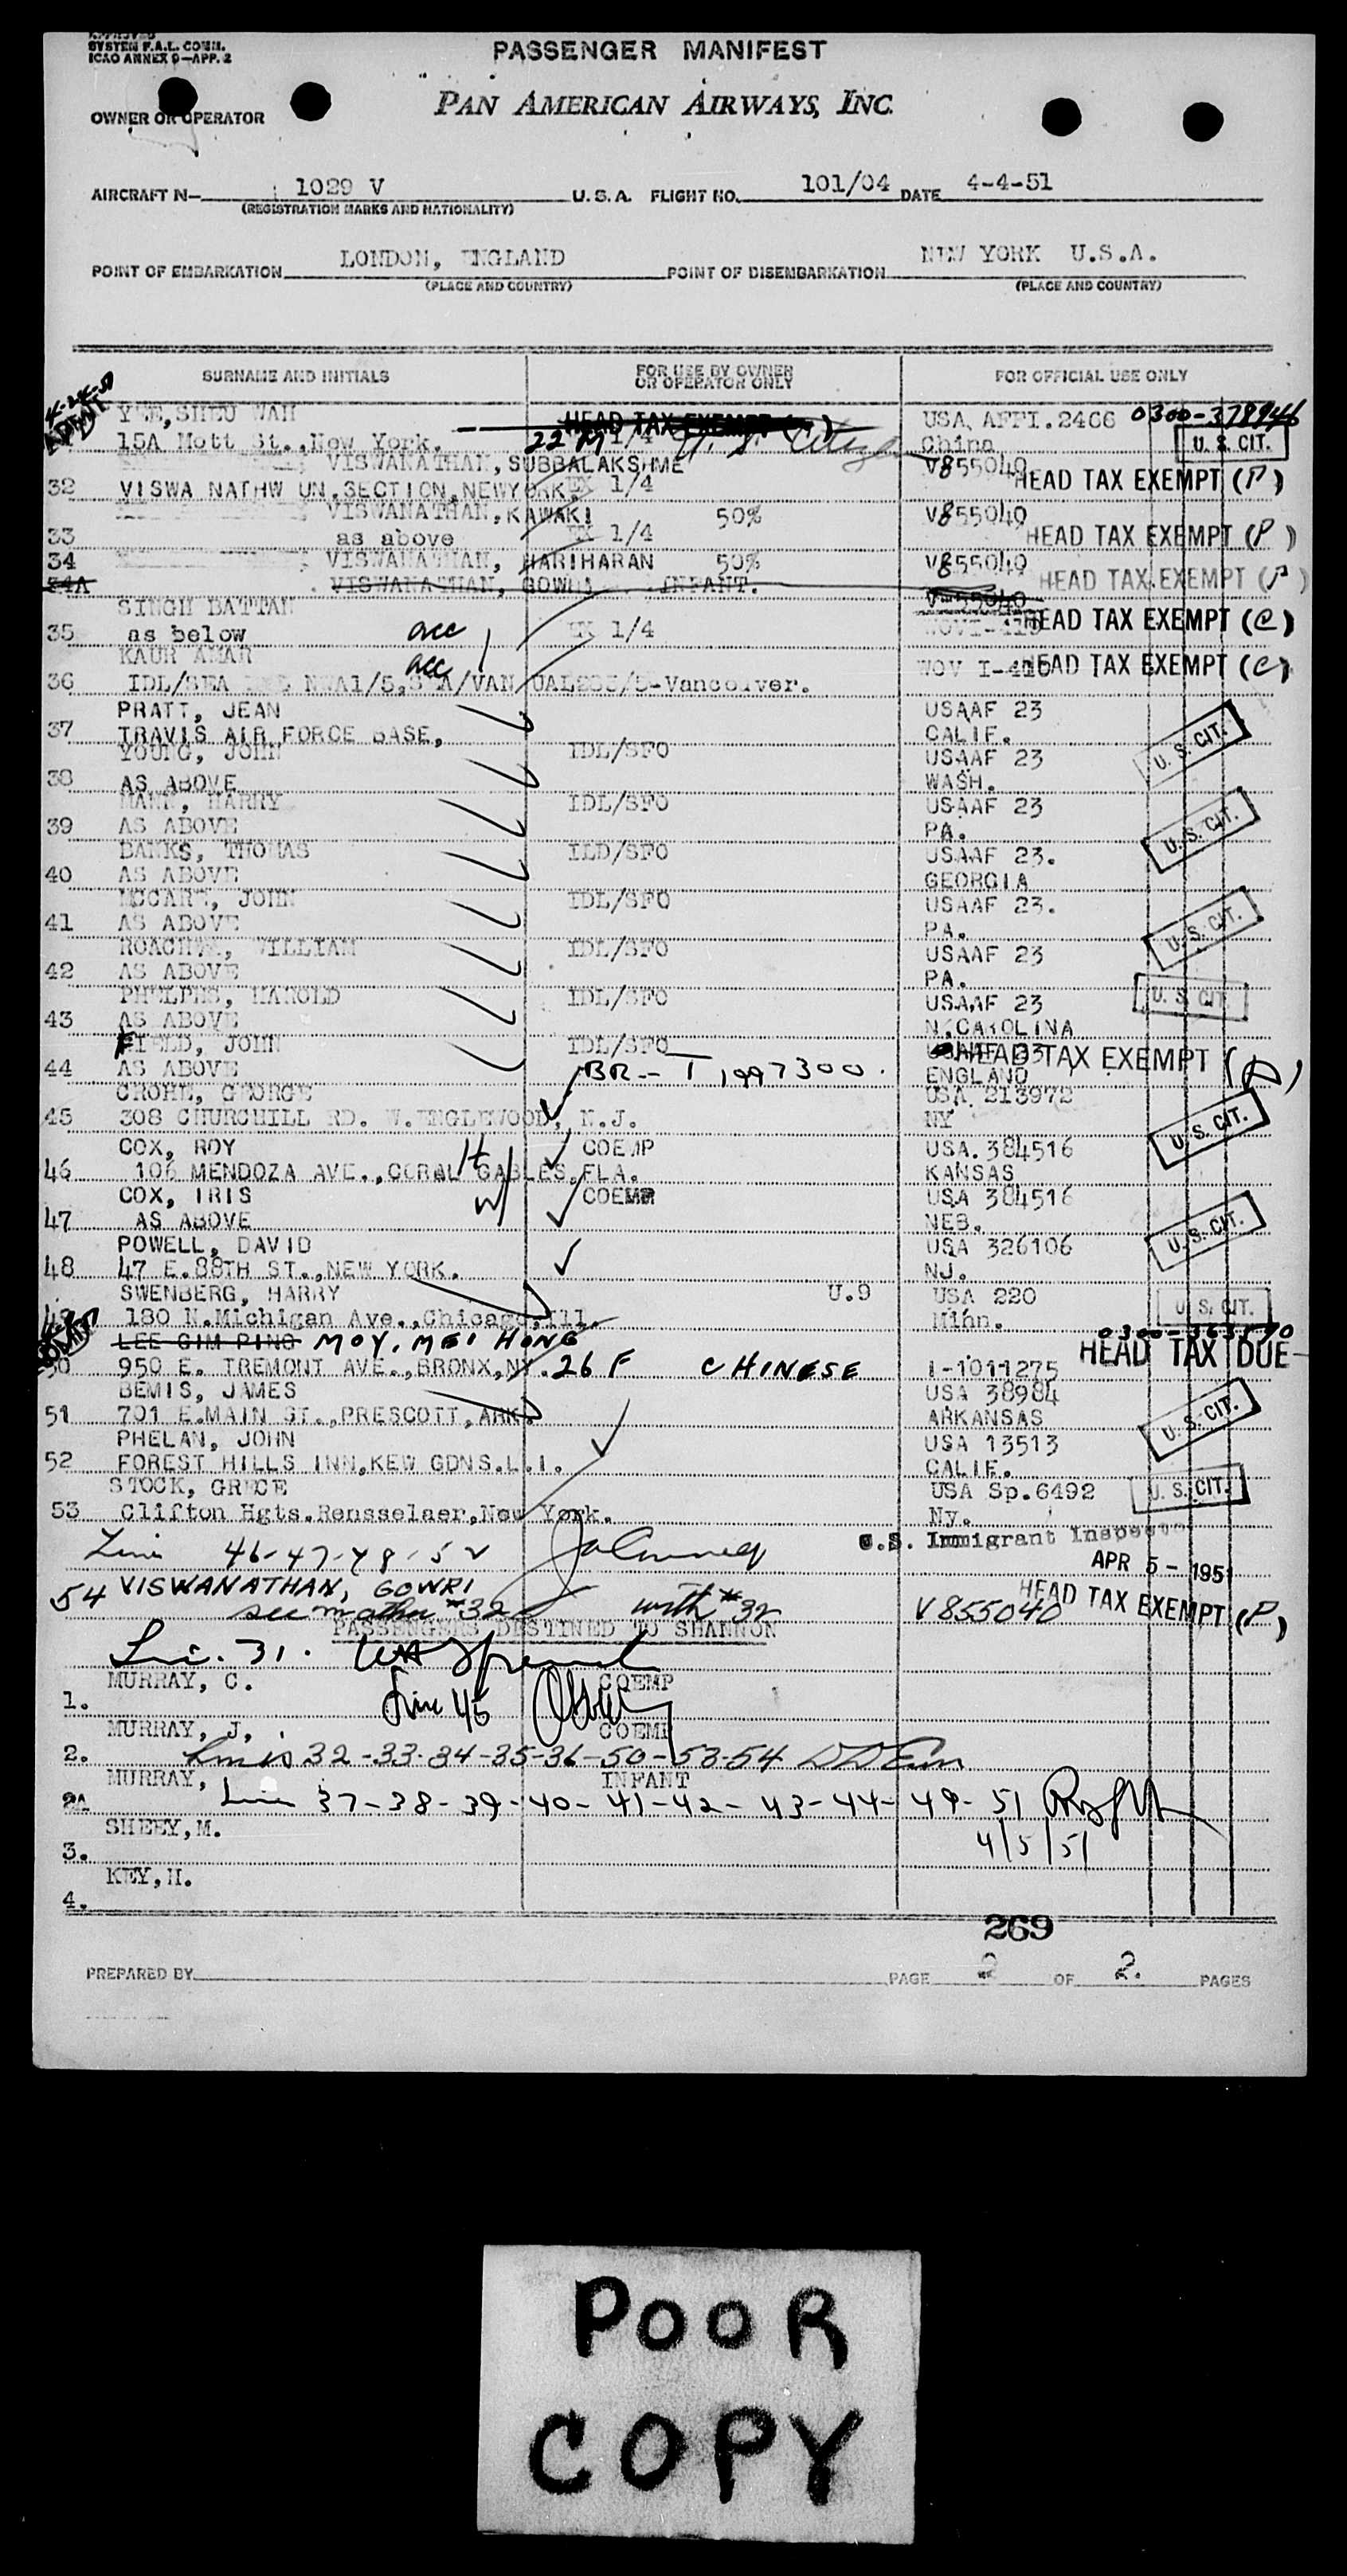 APPROVED
SYSTEM F.A.L. COMM.
ICAO ANNEX 9—APP. 2
PASSENGER MANIFEST
PAN AMERICAN AIRWAYS, INC.
OWNER OR OPERATOR
AIRCRAFT N— 1029 V U.S.A. FLIGHT NO. 101/04 DATE 4-4-51
(REGISTRATION MARKS AND NATIONALITY)
POINT OF EMBARKATION LONDON, ENGLAND POINT OF DISEMBARKATION NEW YORK U.S.A.
(PLACE AND COUNTRY) (PLACE AND COUNTRY)
SURNAME AND INITIALS FOR USE BY OWNER OR OPERATOR ONLY FOR OFFICIAL USE ONLY
4-24-51 ADMIT
YEE, SHEU WAH HEAD TAX EXEMPT ( ) USA, AFFI.2466 0300-378946
15A Mott St., New York. 22 M 1/4 U.S. Citizen China U. S. CIT.
VISWANATHAN, SUBBALAKSHME V855040 HEAD TAX EXEMPT (P)
32 VISWA NATHW UN.SECTION, NEWYORK. EX 1/4
VISWANATHAN, KAWAKI 50% V855040
33 as above EX 1/4 HEAD TAX EXEMPT (P)
34 VISWANATHAN, HARIHARAN 50% V855040 HEAD TAX EXEMPT (P)
34A VISWANATHAN, GOWHA INFANT. V855040
SINGH BATTAN HEAD TAX EXEMPT (C)
35 as below acc EX 1/4 WOVI-415
KAUR AMAR acc WOV I-415 HEAD TAX EXEMPT (C)
36 IDL/SEA NWA1/5, VAN UAL /5-Vancolver.
PRATT, JEAN USAAF 23
37 TRAVIS AIR FORCE BASE, CALIF. U. S. CIT.
YOUNG, JOHN IDL/SFO USAAF 23
38 AS ABOVE WASH.
MANN, HARRY IDL/SFO USAAF 23
39 AS ABOVE PA. U. S. CIT.
BANKS, THOMAS ILD/SFO USAAF 23.
40 AS ABOVE GEORGIA
MCCART, JOHN IDL/SFO USAAF 23.
41 AS ABOVE PA. U. S. CIT.
WILLIAM IDL/SFO USAAF 23
42 AS ABOVE PA.
PHELPHS, HAROLD IDL/SFO USAAF 23 U. S. CIT.
43 AS ABOVE N.CAROLINA
FIELD, JOHN IDL/SFO USAAF 23 HEAD TAX EXEMPT (A)
44 AS ABOVE BR-T,997300. ENGLAND
CROHE, GEORGE USA 213972
45 308 CHURCHILL RD. W.ENGLEWOOD, N.J. NY U. S. CIT.
COX, ROY H COEMP USA.384516
46 106 MENDOZA AVE.,CORAL GABLES,FLA. KANSAS
COX, IRIS W COEMP USA 384516
47 AS ABOVE NEB. U. S. CIT.
POWELL, DAVID USA 326106
48 47 E.88TH ST.,NEW YORK. NJ.
SWENBERG, HARRY U.9 USA 220
49 180 N.Michigan Ave.,Chicago,Ill. Minn. U. S. CIT.
LEE GIM PING MOY, MEI HONG 0300-363590
50 950 E. TREMONT AVE.,BRONX,NY. 26 F CHINESE I-1011275 HEAD TAX DUE
BEMIS, JAMES USA 38984
51 701 E.MAIN ST.,PRESCOTT,ARK. ARKANSAS U. S. CIT.
PHELAN, JOHN USA 13513
52 FOREST HILLS INN,KEW GDNS.L.I. CALIF.
STOCK, GRECE USA Sp.6492 U. S. CIT.
53 Clifton Hgts.Rensselaer,New York. Ny.
Line 46-47-48-52 U.S. Immigrant Inspector
APR 5 - 1951
54 VISWANATHAN, GOWRI HEAD TAX EXEMPT (P)
see mother #32 with #32 V855040
PASSENGERS DESTINED TO SHANNON
Lin. 31.
MURRAY, C. COEMP
1. Line 45
MURRAY, J. COEMP
2. Lines 32-33-34-35-36-50-53-54
MURRAY, INFANT
2A Line 37-38-39-40-41-42-43-44-49-51
SHEEY,M. 4/5/51
3.
KEY,H.
4.
269
PREPARED BY PAGE 2 OF 2. PAGES
POOR
COPY